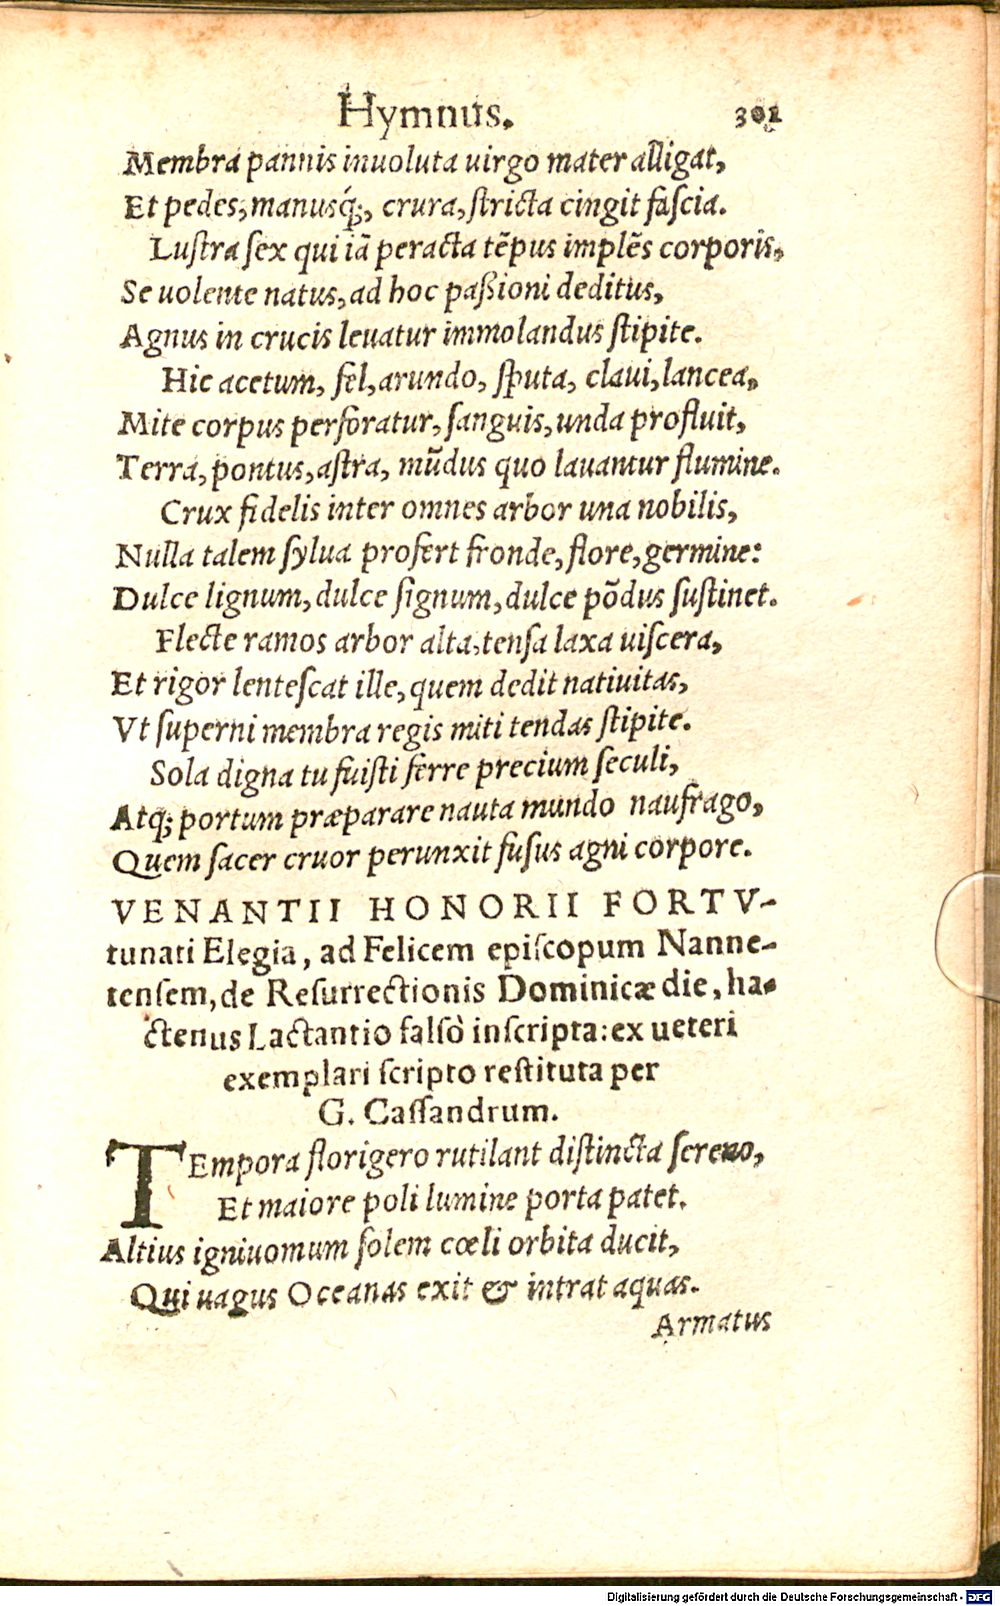 Hymnus. 301
Membra pannis inuoluta uirgo mater alligat,
Et pedes, manusq́;, crura, stricta cingit fascia.
Lustra sex qui iã peracta tẽpus implẽs corporis,
Se uolente natus, ad hoc paßioni deditus,
Agnus in crucis leuatur immolandus stipite.
Hic acetum, fel, arundo, sputa, claui, lancea,
Mite corpus perforatur, sanguis, unda profluit,
Terra, pontus, astra, mũdus quo lauantur flumine.
Crux fidelis inter omnes arbor una nobilis,
Nulla talem sylua profert fronde, flore, germine:
Dulce lignum, dulce signum, dulce põdus sustinet.
Flecte ramos arbor alta, tensa laxa uiscera,
Et rigor lentescat ille, quem dedit natiuitas,
Vt superni membra regis miti tendas stipite.
Sola digna tu fuisti ferre precium seculi,
Atq; portum præparare nauta mundo naufrago,
Quem sacer cruor perunxit fusus agni corpore.
VENANTII HONORII FORTV-
tunati Elegia, ad Felicem episcopum Nanne-
tensem, de Resurrectionis Dominicæ die, ha-
ctenus Lactantio falsò inscripta: ex ueteri
exemplari scripto restituta per
G. Cassandrum.
TEmpora florigero rutilant distincta sereno,
Et maiore poli lumine porta patet.
Altius igniuomum solem cœli orbita ducit,
Qui uagus Oceanas exit & intrat aquas.
Armatus
Digitalisierung gefördert durch die Deutsche Forschungsgemeinschaft - DFG